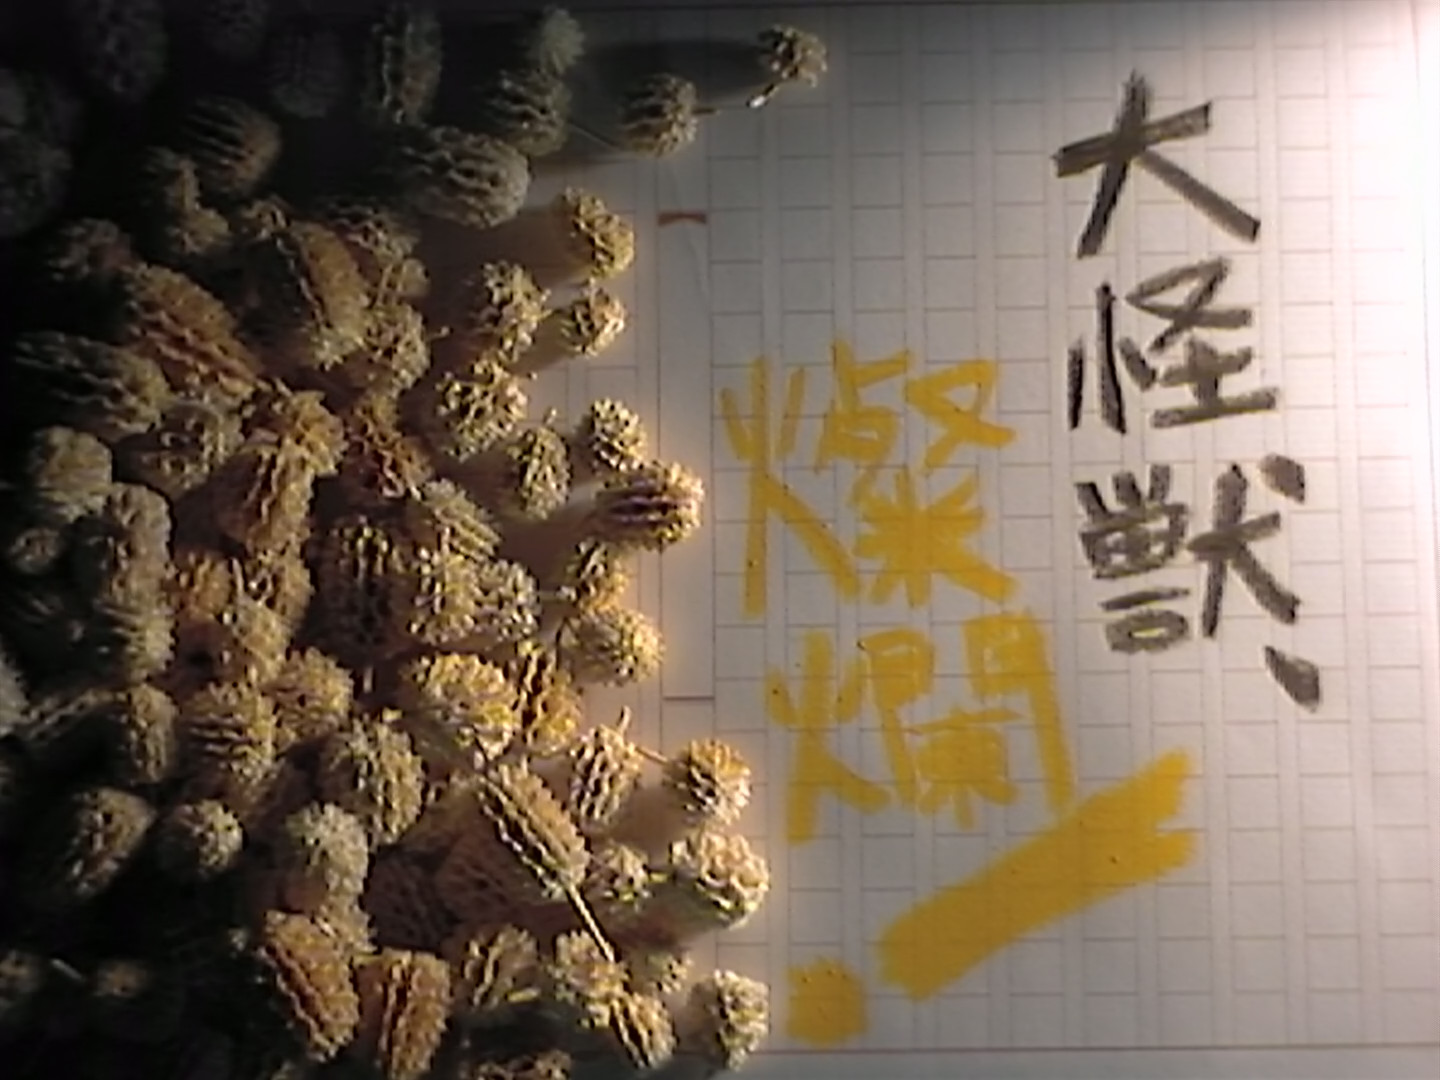 大怪獣、
燦爛!